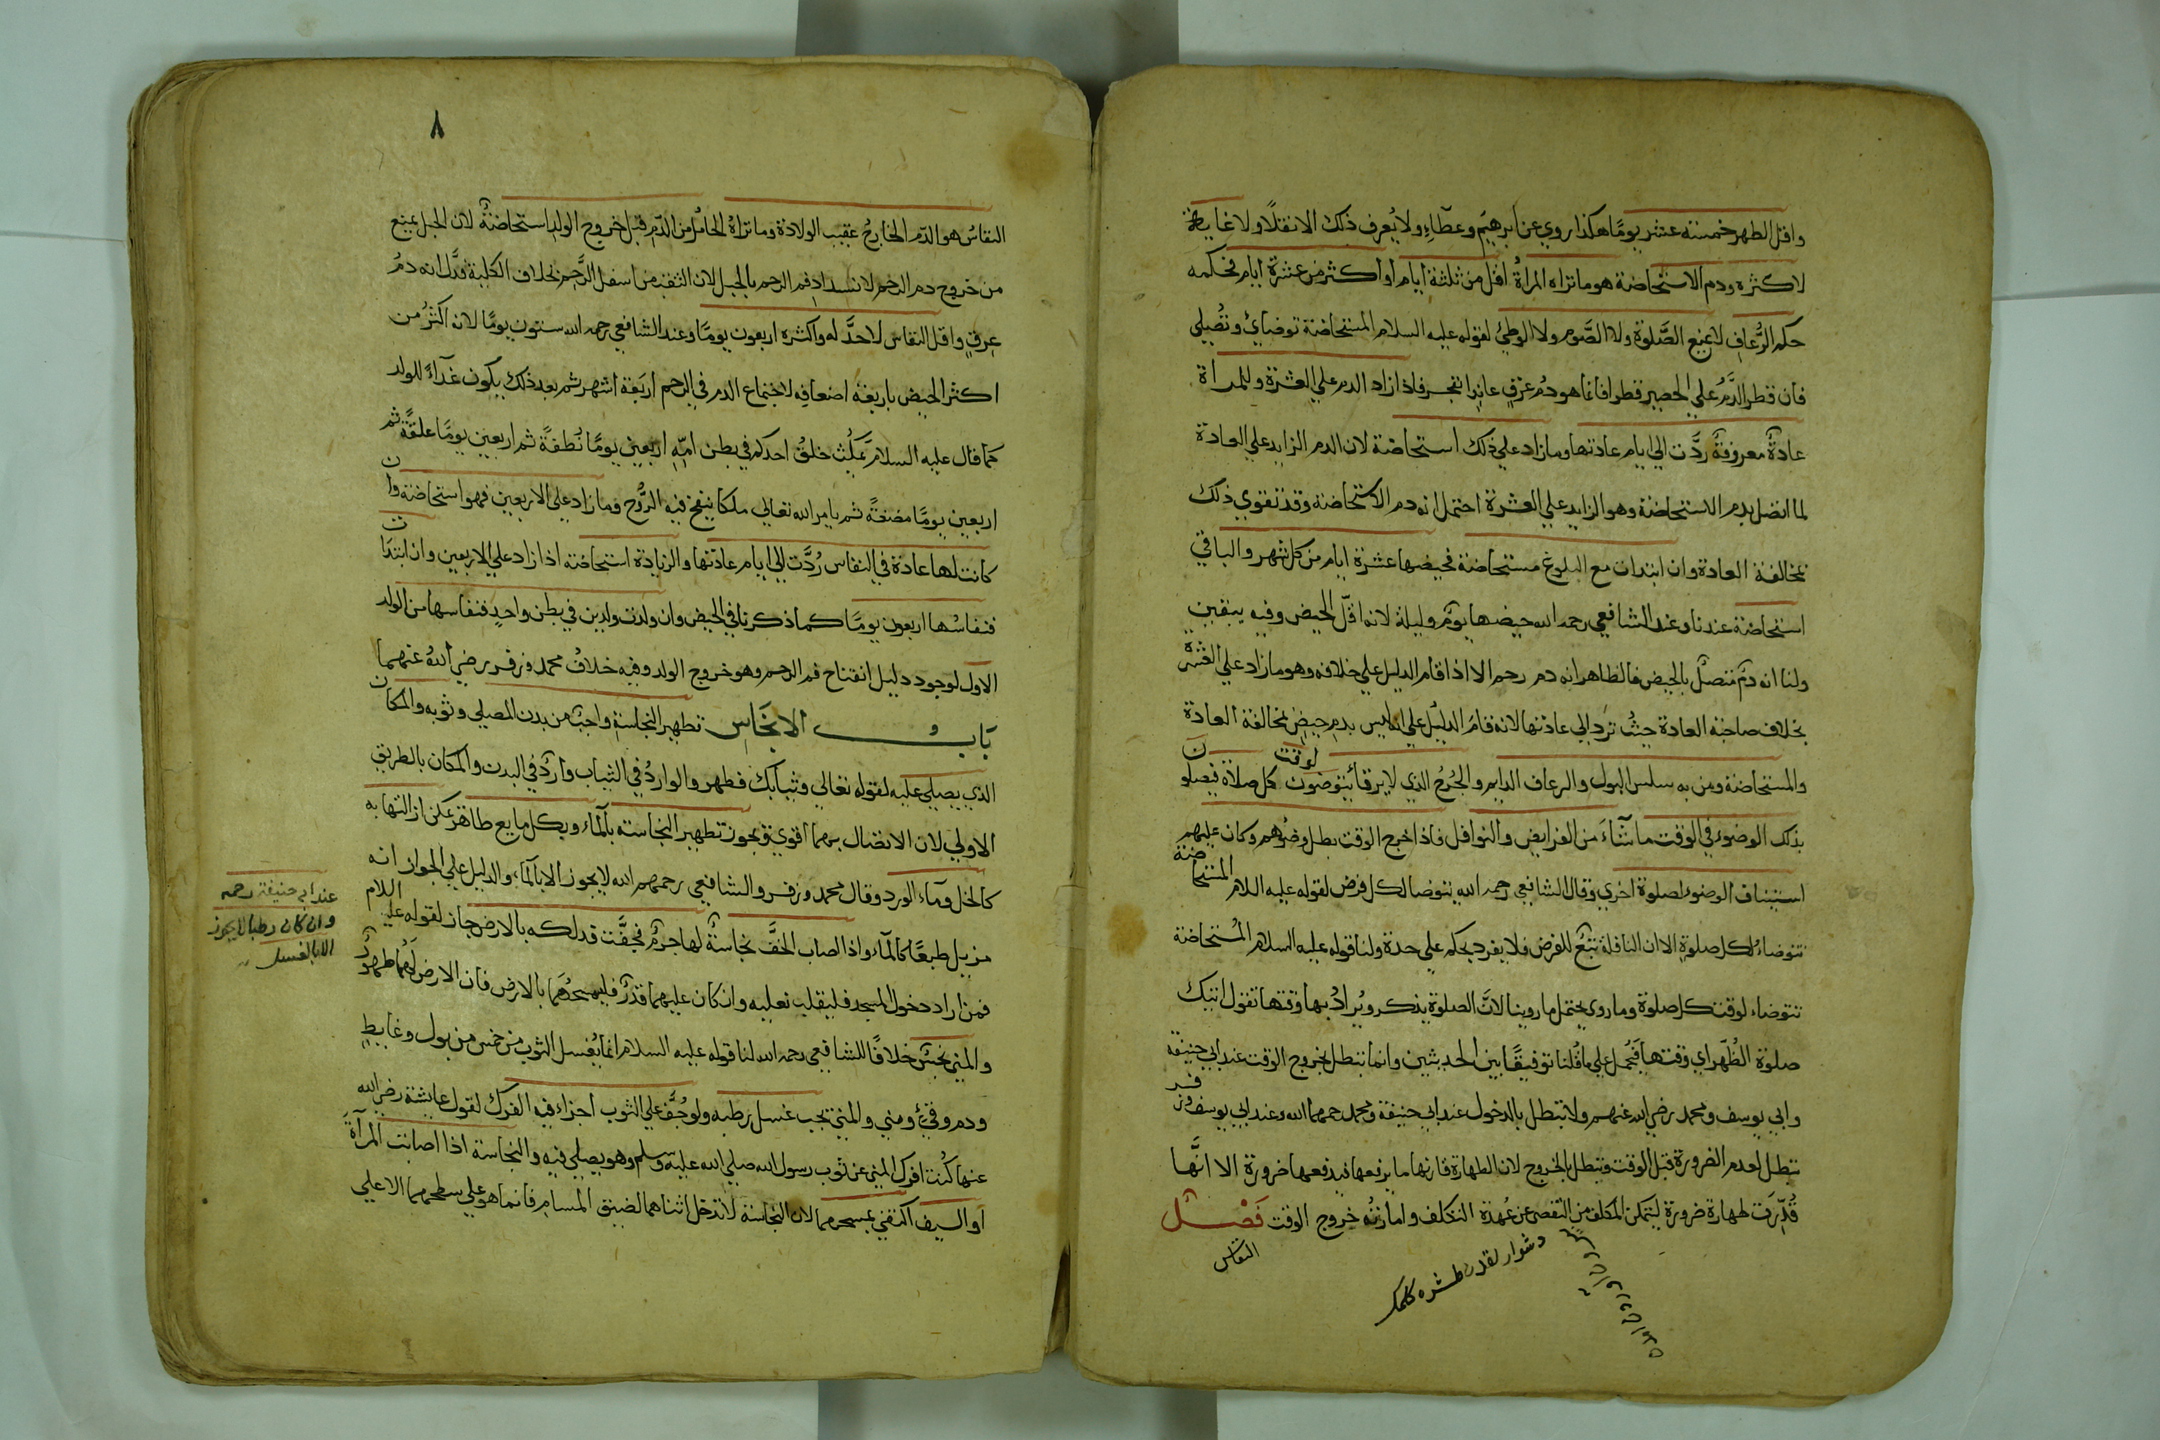 واقل الطهر خمسة عشر يومًا هكذا روي عن ابرهيم وعطاء ولا يُعرف ذلك الا نقلًا ولا غاية
لاكثره ودم الاستحاضة هو ما تراه المراةُ اقل من ثلثة ايام أو أكثر من عشرة ايام فحكمه
حكم الرُّعاف لا يمنع الصَّلوة ولا الصَّوم ولا الوطئ لقوله عليه السلام المستحاضة توضاي وتُصلي
فان قطر الدَّمُ علي الحصير قطرا فانما هو دمُ عرقٍ عاندٍ انفجر فاذا زاد الدم علي العشرة وللمرأة
عادةٌ معروفةٌ ردَّت الي ايام عادتها وما زاد علي ذلك استحاضة لان الدم الزايد علي العادة
لما اتصل بدم الاستحاضة وهو الزايد علي العشرة احتمل انه دم الاستحاضة وقد تقوي ذلك
بمخالفة العادة وان ابتدات مع البلوغ مستحاضة فحيضها عشرة ايام من كل شهر والباقي
استحاضة عندنا وعند الشافعي رحمه الله حيضها يومٌ وليلة لانه اقلّ الحيض وفيه يبقين
ولنا انه دمٌ متصلٌ بالحيض فالظاهر انه دم رحم الا اذا قام الدليل علي خلافه وهو ما زاد علي العشرة
بخلاف صاحبة العادة حيثُ تردّ الي عادتها لانه قام الدليل علي انه ليس بدم حيض لمخالفة العادة
والمستحاضة ومن به سلس البول والرعاف الدايم والجُرحُ الذي لا يرقأ يتوضون لوقت كل صلاة فيصلون
بذلك الوضوء في الوقت ما شاءَ من الفرايض والنوافل فاذا خرج الوقت بطل وضوُهم وكان عليهم
استيناف الوضوء لصلوة اخري وقال الشافعي رحمه الله يتوضا لكل فرض لقوله عليه السلام المستحاضة
تتوضاء لكل صلوة الا ان النافلة تبَعٌ للفرض فلا يفرد بحكم علي حدة ولنا قوله عليه السلام المُستحاضة
تتوضاء لوقت كل صلوة وما روي يحتمل ما روينا لانَّ الصلوة يذكر ويُرادُ بها وقتها تقول اتيك
صلوة الظُّهر اي وقتها فيُحمل علي ما قُلنا توفيقًا بين الحديثين وانما تبطل بخروج الوقت عند ابي حنيفة
وابي يوسف ومحمد رضي الله عنهم ولا تبطل بالدخول عند ابي حنيفة ومحمد رحمهما الله وعند ابي يوسف وزفر
تبطل لعدم الضرورة قبل الوقت وتبطل بالخروج لان الطهارة قارنها ما يرفعها فيدفعها ضرورة الا انَّها
قُدِّرَت طهارة ضرورة ليتمكن المكلف من التقصي عن عُهدة التكلف وامارتُه خروج الوقت فَصْلٌ
النفاس
٨
النفاسُ هو الدّم الخارجُ عقيب الولادة وما تراهُ الحاملُ من الدّم قبل خروج الولد استحاضةٌ لان الحبل يمنع
من خروج دم الرحم لانسداد فم الرحم بالحبل لان الثقبة من اسفل الرَّحِم بخلاف الكلبة فدَّل انه دمُ
عِرقٍ واقل النفاس لا حدَّ له واكثره اربعون يومًا وعند الشافعي رحمه الله ستون يومًا لانه اكثرُ من
اكثر الحيض باربعة اضعافِه لاجتماع الدم في الرحم اربَعة اشهر ثم بعد ذلك يكون غَذاءً للولد
كما قال عليه السلام يمكُث خلقُ احدكم في بطن امّه اربعين يومًا نُطفةً ثم اربعين يومًا علقةً ثم
اربعين يومًا مضغةً ثم يامر الله تعالي ملكا ينفخ فيه الرُّوح فما زاد علي الاربعين فهو استحاضة وان
كانت لها عادة في النفاس رُدَّت الي ايام عادتها والزيادة استحاضة اذا زاد علي الاربعين وان ابتدات
فنفاسُها اربعون يومًا كما ذكرنا في الحيض وان ولدت ولدين في بطن واحدٍ فنفاسها من الولد
الاول لوجود دليل انفتاح فم الرحم وهو خروج الولد وفيه خلافُ محمد وزفر رضي اللهُ عنهما
بَابُ الانجَاسِ تطهير النجاسة واجبٌ من بدن المصلي وثوبه والمكان
الذي يصلي عليه لقوله تعالي وثيابك فطهر والواردُ في الثياب واردٌ في البدن والمكان بالطريق
الاولي لان الاتصال بهما اقوي ويجوز تطهير النجاسة بالماء وبكل مايع طاهرٍ يمكن ازالتها به
كالخل وماء الورد وقال محمد وزفر والشافعي رحمهم الله لا يجوز الا بالماء والدليل علي الجواز انه
مزيل طبعًا كالماء واذا اصاب الخفَّ نجاسةٌ لها جرمٌ فجفَّت فدلكه بالارض جاز لقوله عليه السلام
فمن اراد دخول المسجد فليقلب نعليه وان كان عليهما قذرٌ فليمسحهُما بالارض فان الارض لَهُما طهورٌ
والمني نجسٌ خلافًا للشافعي رحمه الله لنا قوله عليه السلام انما يُغسل الثوب من خمس من بول وغايطٍ
ودم وقيءٍ ومني والمني يجب غسل رطبه ولو جُفَّ علي الثوب اجزاء فيه الفرك لقول عايشة رضي الله
عنها كُنت افرك المني عن ثوب رسول الله صلي الله عليه وسلم وهو يصلي فيه والنجاسة اذا اصابت المرآةَ
او السيف اكتفي بمسحهما لان النجاسة لا تدخل اثناهما لضيق المسام فانما هو علي سطحهما الاعلي
عند ابي حنيفة رحمه
وان كان رطبا لا يجوز
الا بالغسل